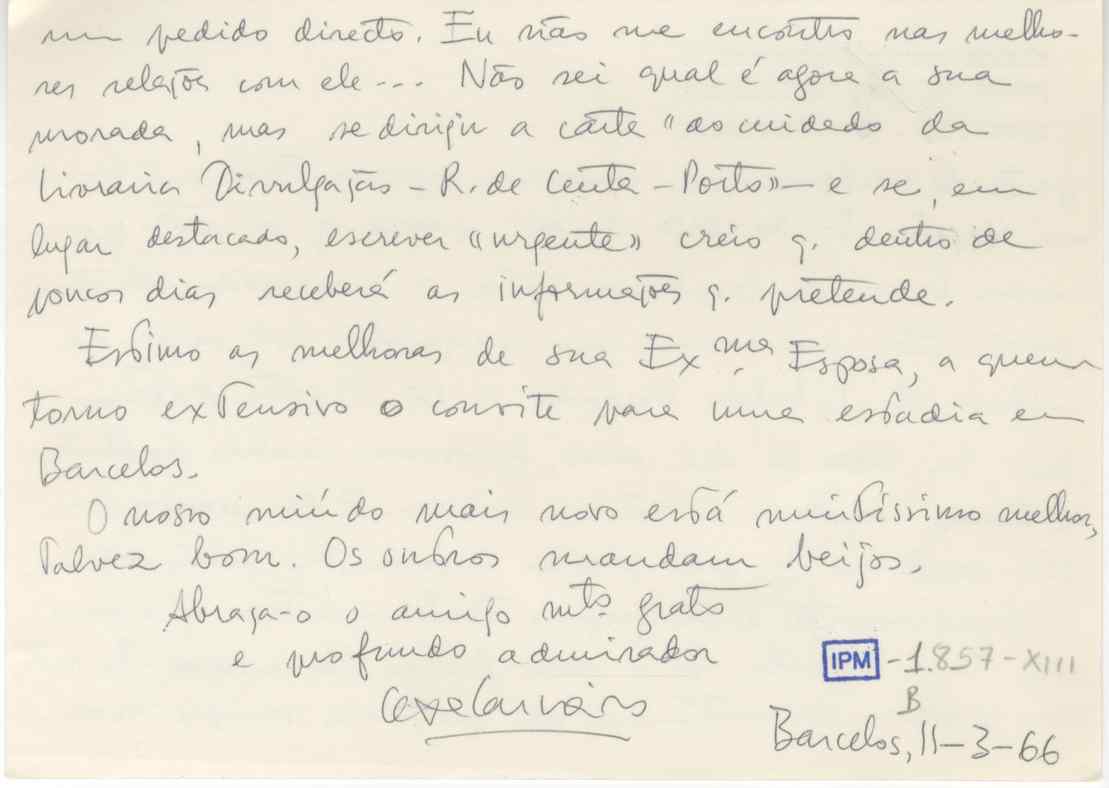 um pedido directo. Eu não me encontro nas melho-
res relações com ele... Não sei qual é agora a sua
morada, mas se dirigir a carta "ao cuidado da
Livraria Divulgação - R. de Ceuta - Porto» - e se, em
lugar destacado, escrever «urgente» creio q. dentro de
poucos dias receberá as informações q. pretende.
Estimo as melhoras de sua Ex.ma Esposa, a quem
torno extensivo o convite para uma estadia em
Barcelos.
O nosso miúdo mais novo está muitíssimo melhor,
talvez bom. Os outros mandam beijos.
Abraça-o o amigo mto. grato
e profundo admirador
IPM - 1.857 - XIII
B
Barcelos, 11-3-66